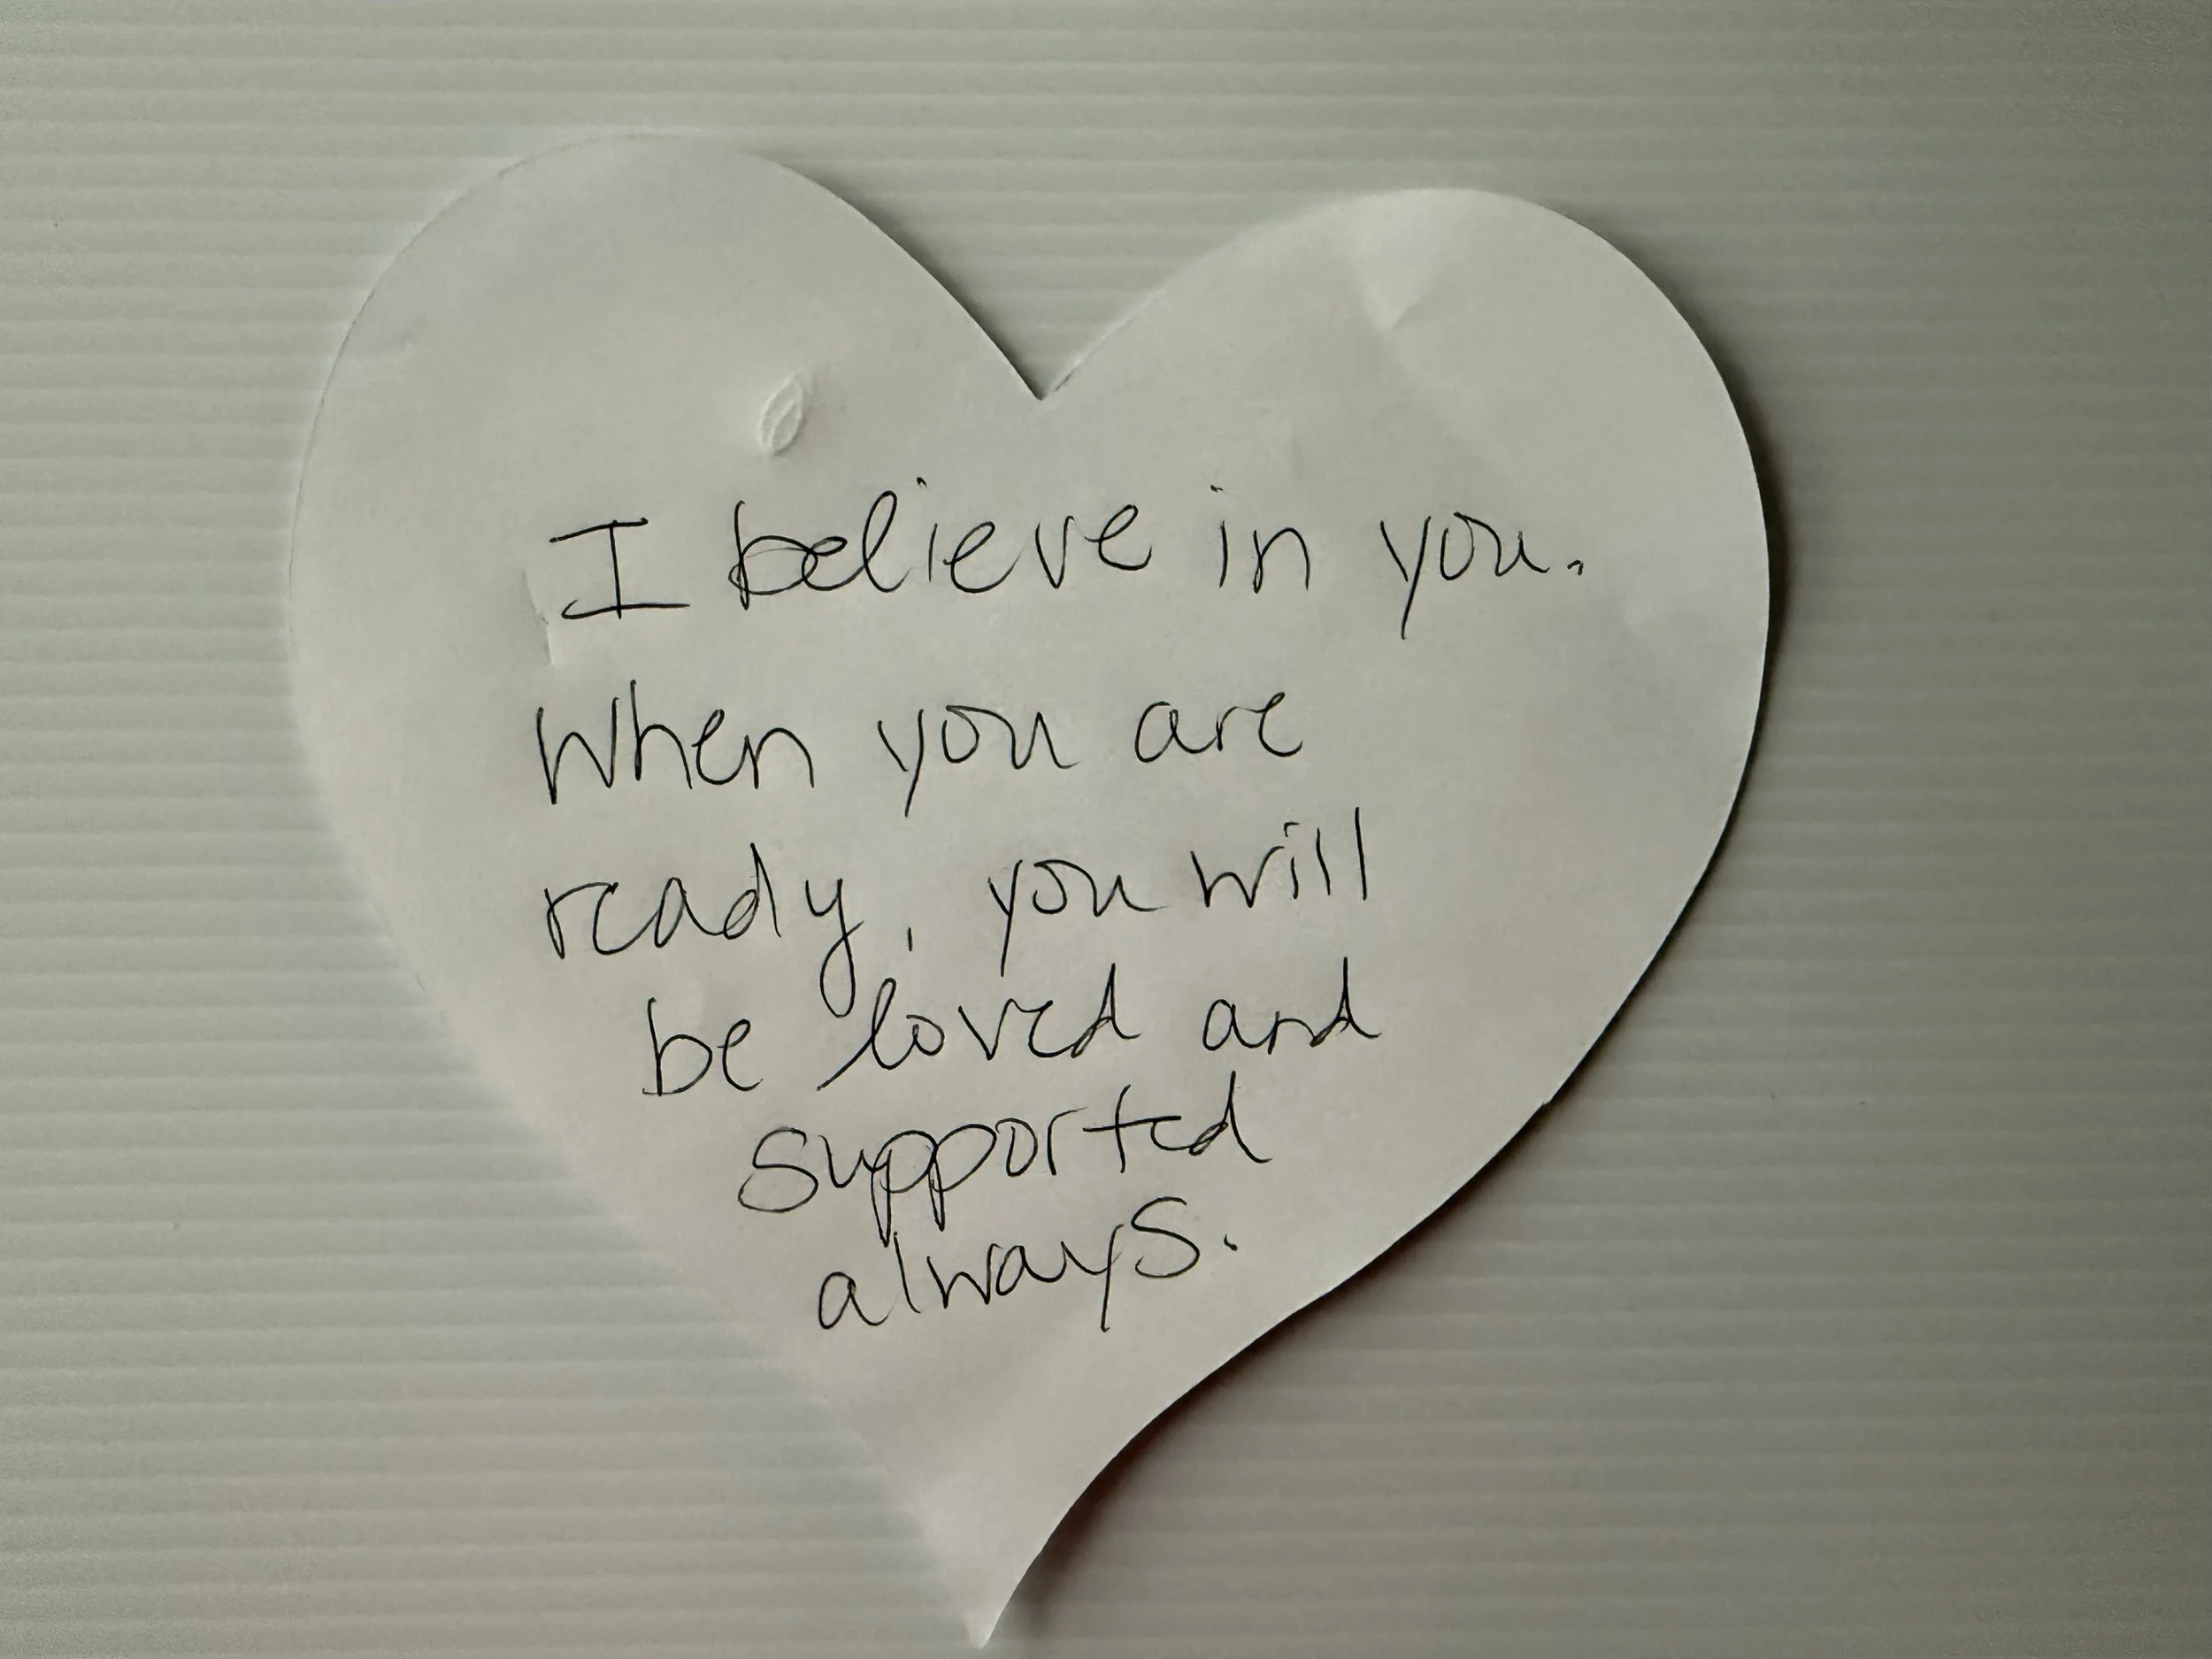 I believe in you.
When you are
ready, you will
be loved and
supported
always.